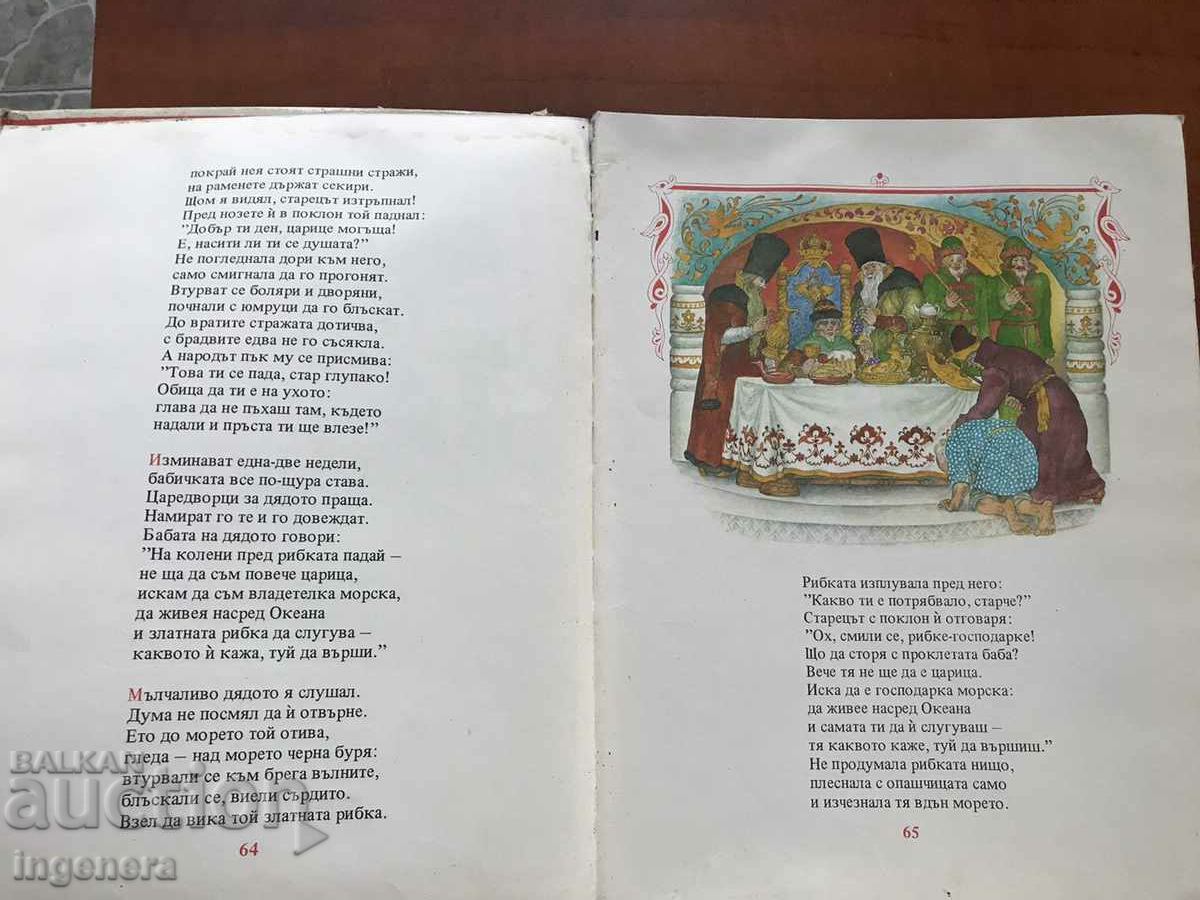 покрай нея стоят страшни стражи,
на раменете държат секири.
Щом я видял, старецът изтръпнал!
Пред нозете ѝ в поклон той паднал:
"Добър ти ден, царице могъща!
Е, насити ли ти се душата?"
Не погледнала дори към него,
само смигнала да го прогонят.
Втурват се боляри и дворяни,
почнали с юмруци да го блъскат.
До вратите стражата дотичва,
с брадвите едва не го съсякла.
А народът пък му се присмива:
"Това ти се пада, стар глупако!
Обица да ти е на ухото:
глава да не пъхаш там, където
надали и пръста ти ще влезе!"
Изминават една-две недели,
бабичката все по-щура става.
Царедворци за дядото праща.
Намират го те и го довеждат.
Бабата на дядото говори:
"На колени пред рибката падай –
не ща да съм повече царица,
искам да съм владетелка морска,
да живея насред Океана
и златната рибка да слугува –
каквото ѝ кажа, туй да върши."
Мълчаливо дядото я слушал.
Дума не посмял да ѝ отвърне.
Ето до морето той отива,
гледа – над морето черна буря:
втурвали се към брега вълните,
блъскали се, виели сърдито.
Взел да вика той златната рибка.
64
Рибката изплувала пред него:
"Какво ти е потрябвало, старче?"
Старецът с поклон ѝ отговаря:
"Ох, смили се, рибке-господарке!
Що да сторя с проклетата баба?
Вече тя не ще да е царица.
Иска да е господарка морска:
да живее насред Океана
и самата ти да ѝ слугуваш –
тя каквото каже, туй да вършиш."
Не продумала рибката нищо,
плеснала с опашчицата само
и изчезнала тя вдън морето.
65
BALKAN
auction
ingenera